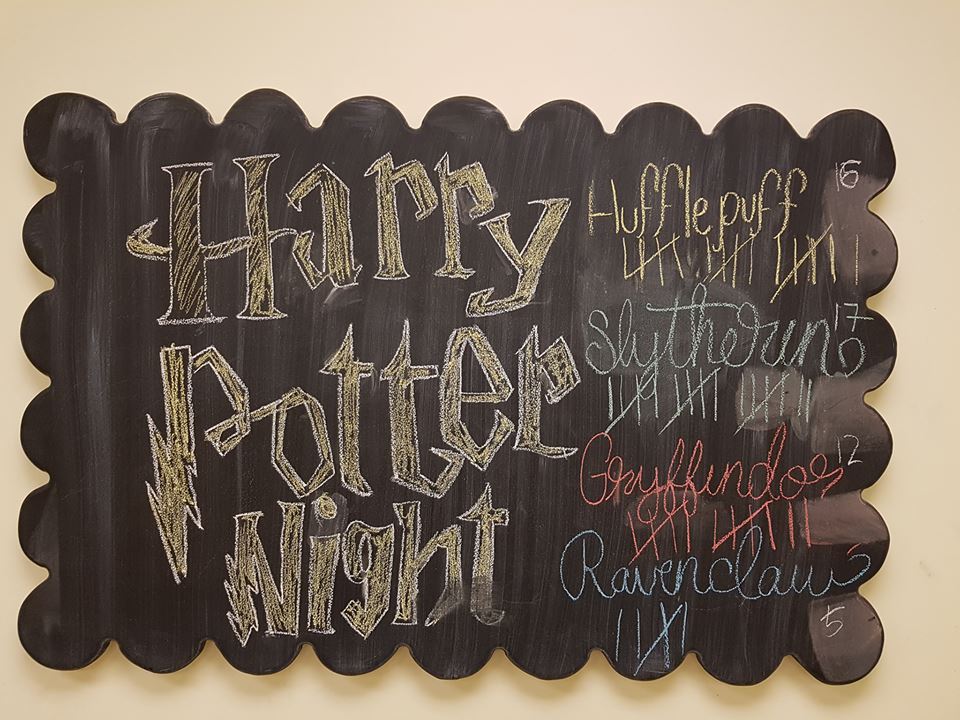 Harry
Potter
Night
Hufflepuff 16
Slytherin 17
Gryffindor 12
Ravenclaw
5